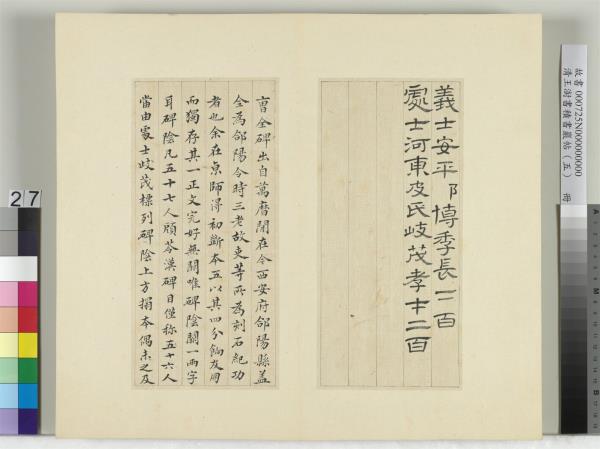 故書 000725N000000000
清王澍書積書巖帖（五） 冊
義士安平𨸏博季長一百
處士河東皮氏岐茂孝才二百
曹全碑出自萬曆閒在今西安府郃陽縣蓋
全為郃陽令時三老故吏等所為刻石紀功
者也余在京師得初斷本五以其四分餉友朋
而獨存其一正文完好無闕唯碑陰闕一兩字
耳碑陰凡五十七人顧苓漢碑目僅稱五十六人
當由處士岐茂標列碑陰上方搨本偶未之及
27